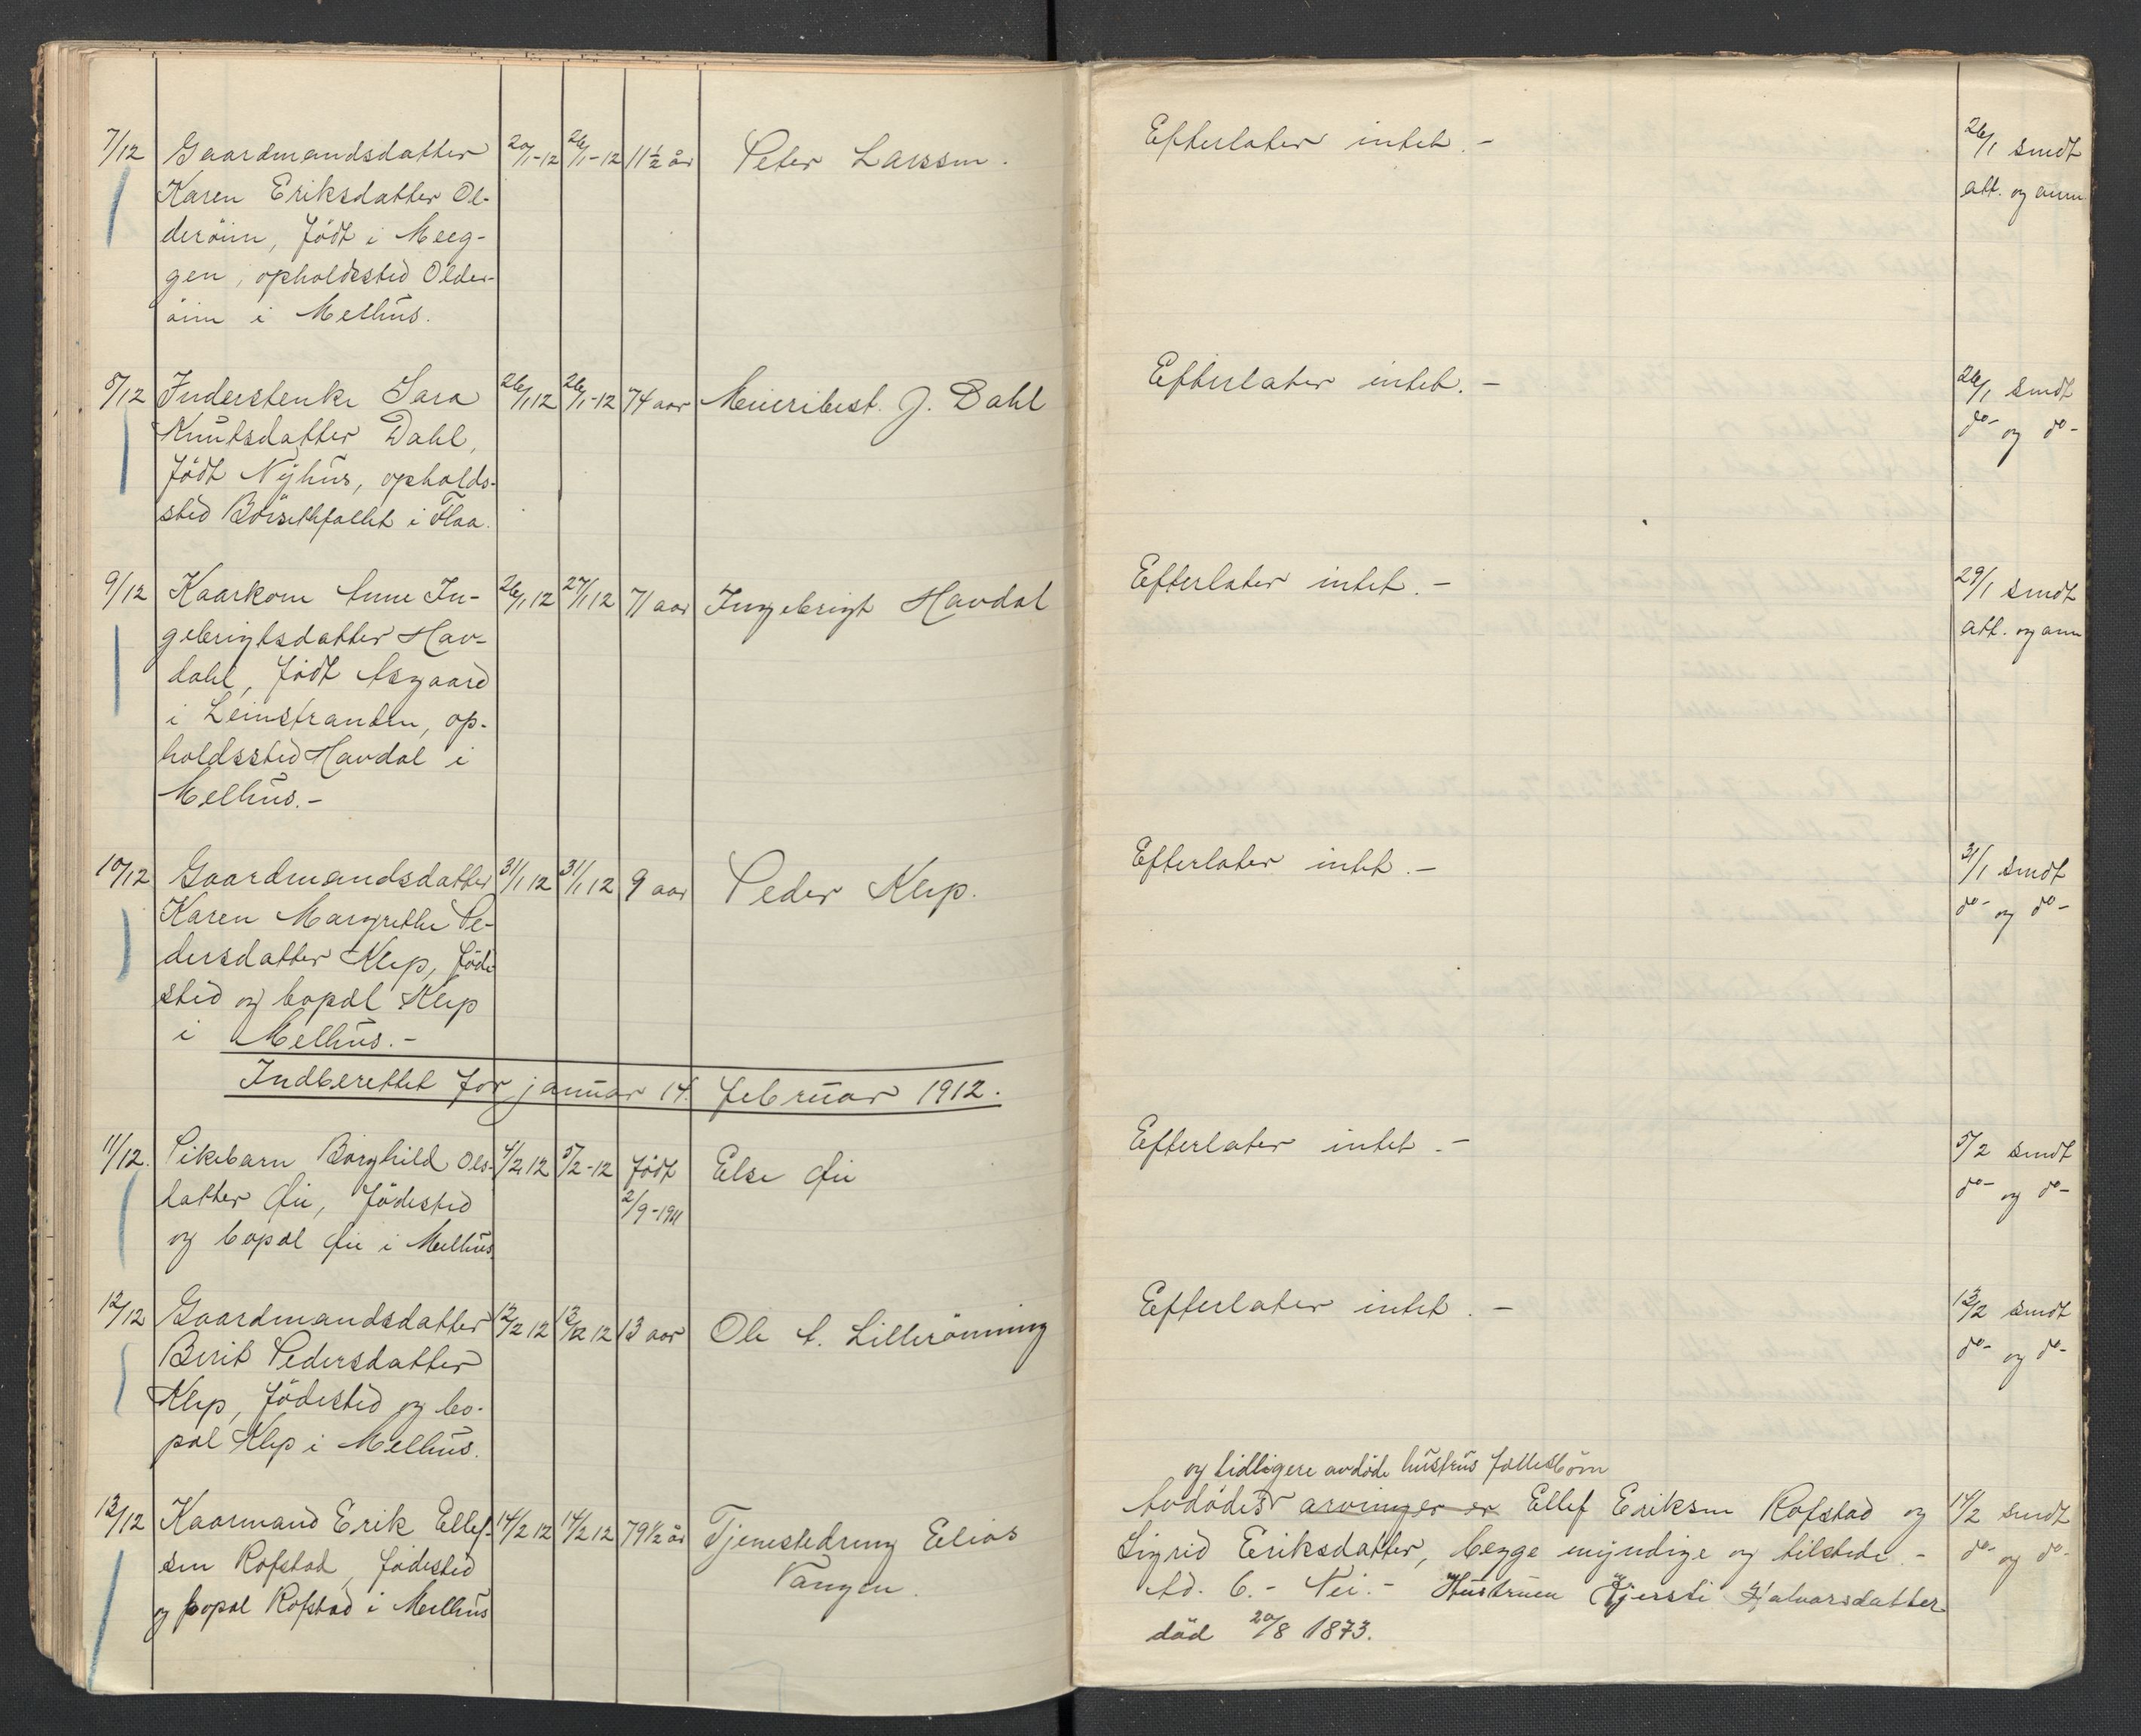 7/12 Gaardmandsdatter 20/1-12 26/1-12 11½ år Peter Larssen. Efterlater intet.- 26/1 sendt
Karen Eriksdatter Ol- att. og anm.
deröien, födt i Meeg-
gen, opholdssted Older-
öien i Melhus.
8/12 Inderstenke Sara 26/1 12 26/1-12 74 aar Meieribest. J. Dahl Efterlater intet.- 26/1 sendt
Knutsdatter Dahl, do- og do-
födt Nyhus, opholds-
sted Börsethfallet i Flaa.
9/12 Kaarkone Anne In- 26/1 12 27/1 12 71 aar Ingebrigt Havdal Efterlater intet.- 29/1 sendt
gebrigtsdatter Hav- att. og anm
dahl, födt Asgaard
i Leinstranden, op-
holdssted Havdal i
Melhus.-
10/12 Gaardmandsdatter 31/1 12 31/1 12 9 aar Peder Klep. Efterlater intet.- 31/1 sendt
Karen Margrethe Pe- do- og do-
dersdatter Klep, föde
sted og bopæl Klep
i Melhus.-
Indberettet for januar 14. februar 1912.
11/12. Pikebarn Borghild Ols- 4/2 12 5/2-12 födt Else Øie Efterlater intet.- 5/2 sendt
datter Øie, födested 2/9-1911 do- og do-
og bopæl Øie i Melhus
12/12 Gaardmandsdatter 12/2 12 13/2 12 13 aar Ole A. Lillerönning Efterlater intet.- 13/2 sendt
Berit Pedersdatter do- og do-
Klep, födested og bo-
pæl Klep i Melhus.
og tidligere avdöde hustrus fællesbörn
13/12 Kaarmand Erik Ellef- 14/2 12 14/2 12 79½ år Tjenestedreng Elias Avdödes arvinger er Ellef Eriksen Rofstad og 14/2 sendt
sen Rofstad, födested Vangen. Sigrid Eriksdatter, begge myndige og tilstede.- do- og do-
og bopæl Rofstad i Melhus Ad. 6.- Nei.- Hustruen Kjersti Halvorsdatter
död 20/8 1873.